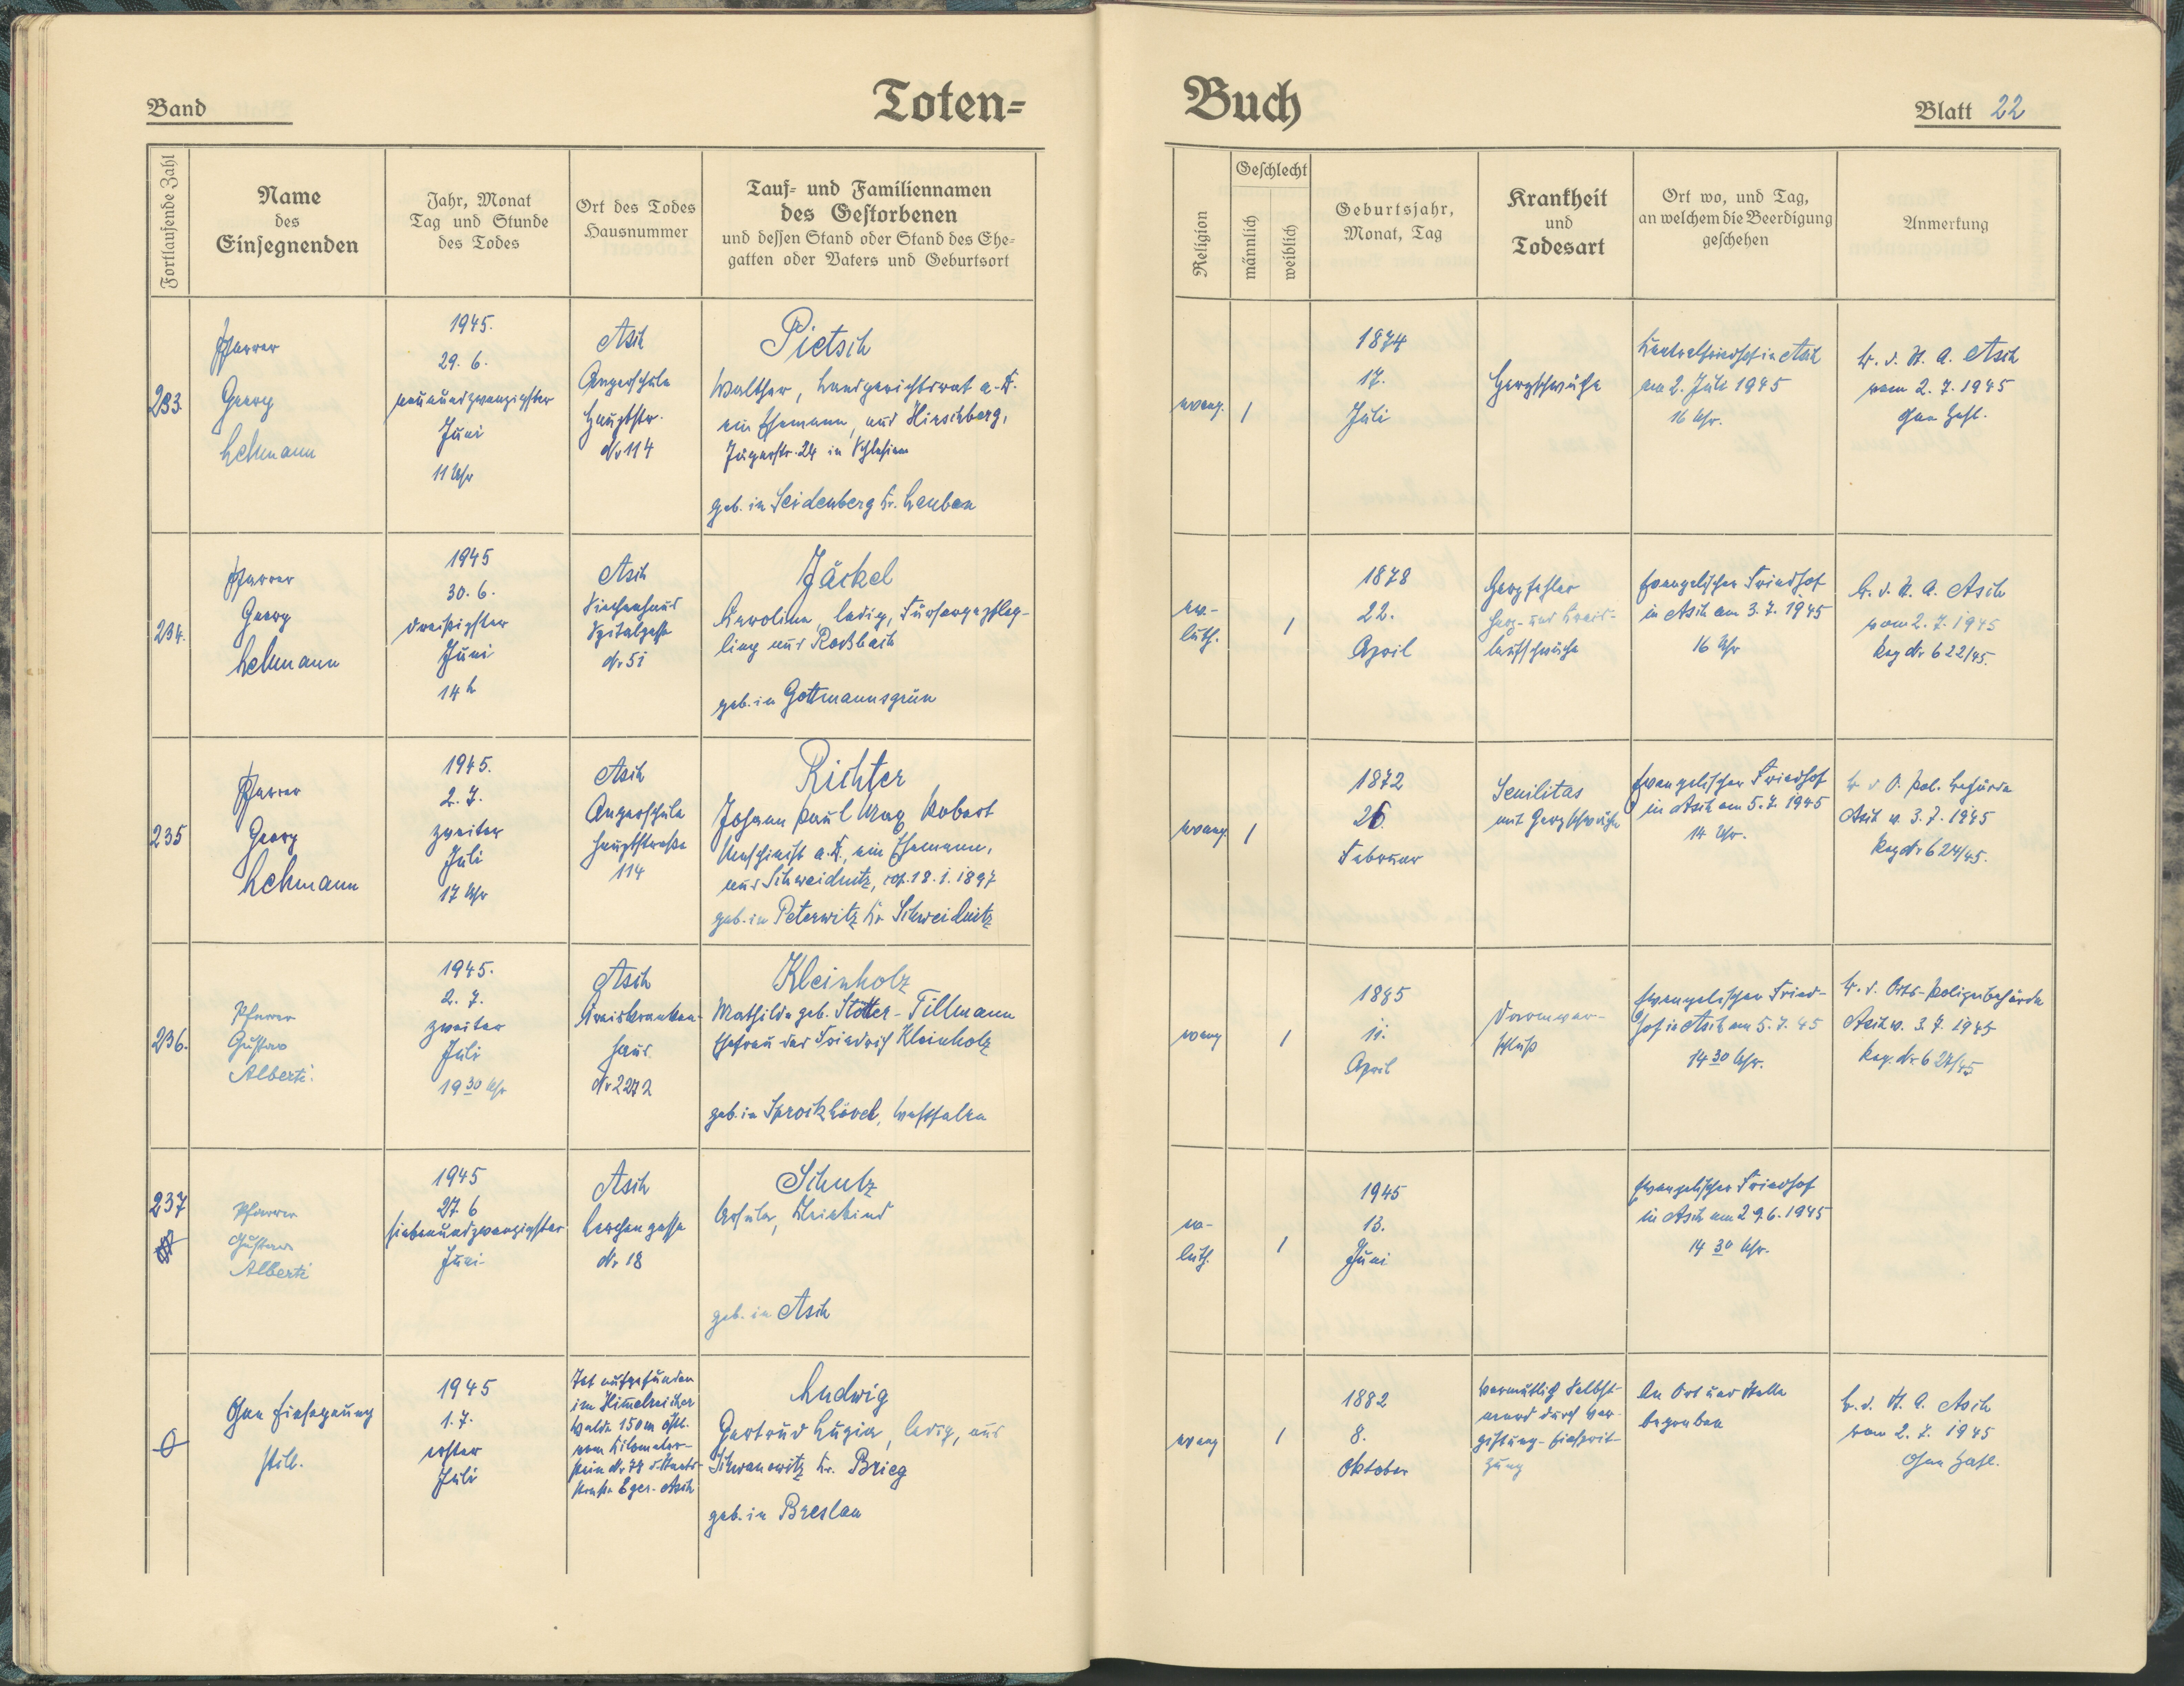 Band
Toten=
Buch
Blatt 22
Fortlaufende Zahl
Name
des
Einsegnenden
Jahr, Monat
Tag und Stunde
des Todes
Ort des Todes
Hausnummer
Tauf= und Familiennamen
des Gestorbenen
und dessen Stand oder Stand des Ehe=
gatten oder Vaters und Geburtsort
Religion
Geschlecht
männlich
weiblich
Geburtsjahr,
Monat, Tag
Krankheit
und
Todesart
Ort wo, und Tag,
an welchem die Beerdigung
geschehen
Anmerkung
233.
Pfarrer
Georg
Lehmann
1945.
29. 6.
neunundzwanzigster
Juni
11 Uhr
Asch
Angerschule
Hauptstr.
Nr 114
Pietsch
Walther, Landgerichtsrat a. D.
ein Ehemann, aus Hirschberg,
Jägerstr. 24 in Schlesien
geb. in Seidenberg Kr. Lauban
evang.
1
1874
17.
Juli
Herzschwäche
Zentralfriedhof in Asch
am 2. Juli 1945
16 Uhr.
B. d. St. A. Asch
vom 2. 7. 1945
ohne Zahl.
234.
Pfarrer
Georg
Lehmann
1945
30. 6.
dreißigster
Juni
14 h
Asch
Siechenhaus
Spitalgasse
Nr 51
Jäckel
Karoline, ledig, Fürsorgepfleg-
ling aus Roßbach
geb. in Gottmannsgrün
ev.-
luth.
1
1878
22.
April
Herzfehler
Herz- und Kreis-
laufschwäche
Evangelischer Friedhof
in Asch am 3. 7. 1945
16 Uhr
B. d. St. A. Asch
vom 2. 7. 1945
Reg Nr 622/45.
235
Pfarrer
Georg
Lehmann
1945.
2. 7.
zweiter
Juli
17 Uhr
Asch
Angerschule
Hauptstraße
114
Richter
Johann Paul Max Robert
Maschinist a. D., ein Ehemann,
aus Schweidnitz, cop. 18. 1. 1897
geb. in Peterwitz Kr Schweidnitz
evang.
1
1872
26.
Februar
Senilitas
mit Herzschwäche
Evangelischer Friedhof
in Asch am 5. 7. 1945
14 Uhr.
B d O. Pol. Behörde
Asch v. 3. 7. 1945
Reg Nr 624/45.
236.
Pfarrer
Gustav
Alberti.
1945.
2. 7.
zweiter
Juli
19 30 Uhr
Asch
Kreiskranken-
haus
Nr 2272
Kleinholz
Mathilde geb. Stotter-Tillmann
Ehefrau des Friedrich Kleinholz
geb. in Sprockhövel, Westfalen
evang
1
1885
11.
April
Darmver-
schluß
Evangelischer Fried-
hof in Asch am 5. 7. 45
14 30 Uhr.
B. d. Orts-Polizeibehörde
Asch v. 3. 7. 1945
Reg. Nr 624/45
237
Pfarrer
Gustav
Alberti
1945
27. 6
siebenundzwanzigster
Juni
Asch
Lerchengasse
Nr 18
Schulz
Ursula, Kleinkind
geb. in Asch
ev-
luth.
1
1945
13.
Juni
Evangelischer Friedhof
in Asch am 29. 6. 1945
14 30 Uhr.
0
Ohne Einsegnung
still.
1945
1. 7.
erster
Juli
Tot aufgefunden
im Himmelreicher
Walde 150 m östl.
vom Kilometer-
stein Nr 74 d. Staats-
straße Eger-Asch
Ludwig
Gertrud Luzia, ledig, aus
Schwanowitz Kr. Brieg
geb. in Breslau
evang
1
1882
8.
Oktober
Vermutlich Selbst-
mord durch Ver-
giftung-Einsprit-
zung
An Ort und Stelle
begraben
B. d. St. A. Asch
vom 2. 7. 1945
Ohne Zahl.